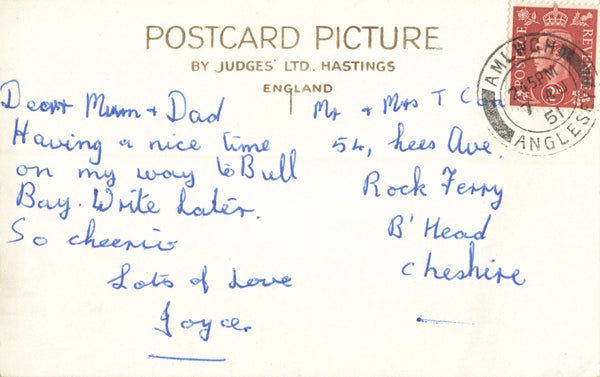 POSTCARD PICTURE
BY JUDGES' LTD., HASTINGS
ENGLAND
Dear Mum + Dad
Having a nice time
on my way to Bull
Bay. Write Later.
So cheerio
Lots of Love
Joyce.
Mr + Mrs T
54, Lees Ave.
Rock Ferry
B'Head
Cheshire
POSTAGE
REVENUE
AMLWCH
PM
7
51
ANGLESEY